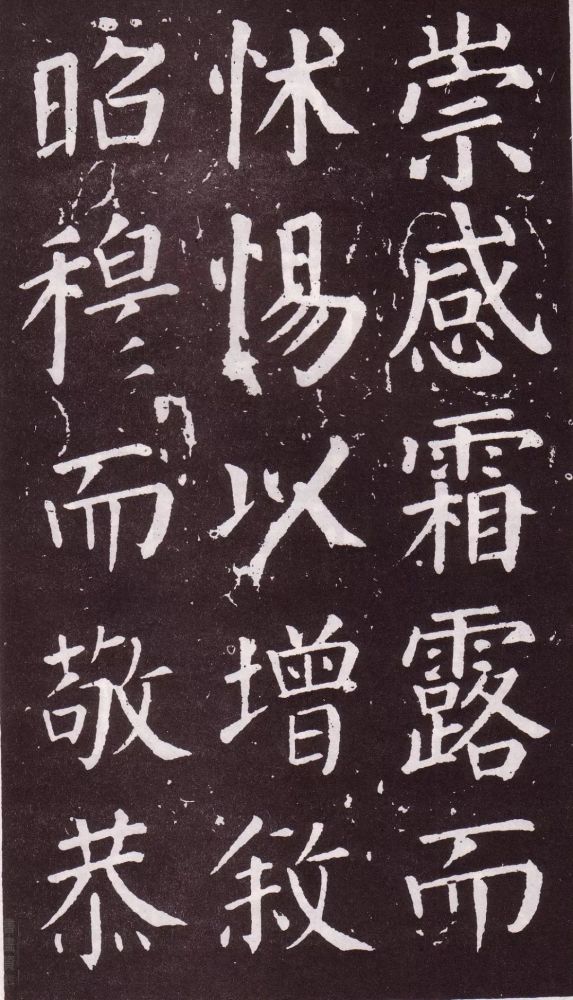 崇感霜露而
怵惕以增敘
昭穆而敬恭